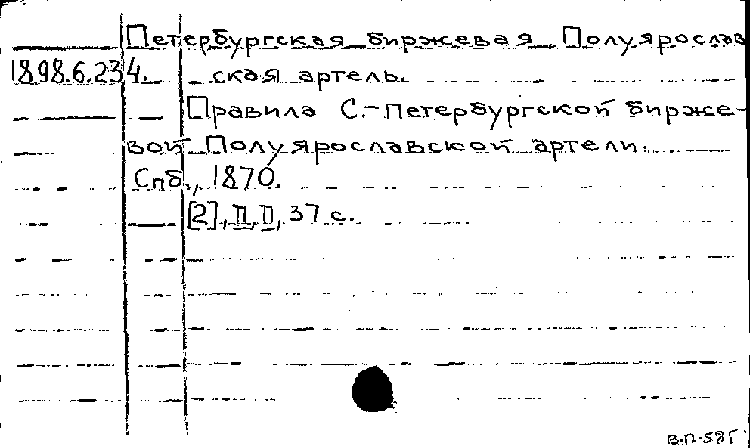 Петербургская биржевая Полуярослав
18.98.6.234.
ская артель.
Правила С.-Петербургской бирже-
вой Полуярославской артели.
Спб., 1870.
[2], II, II, 37 с.